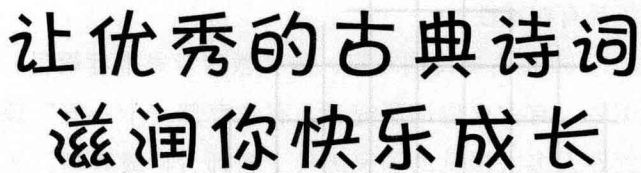 让优秀的古典诗词
滋润你快乐成长